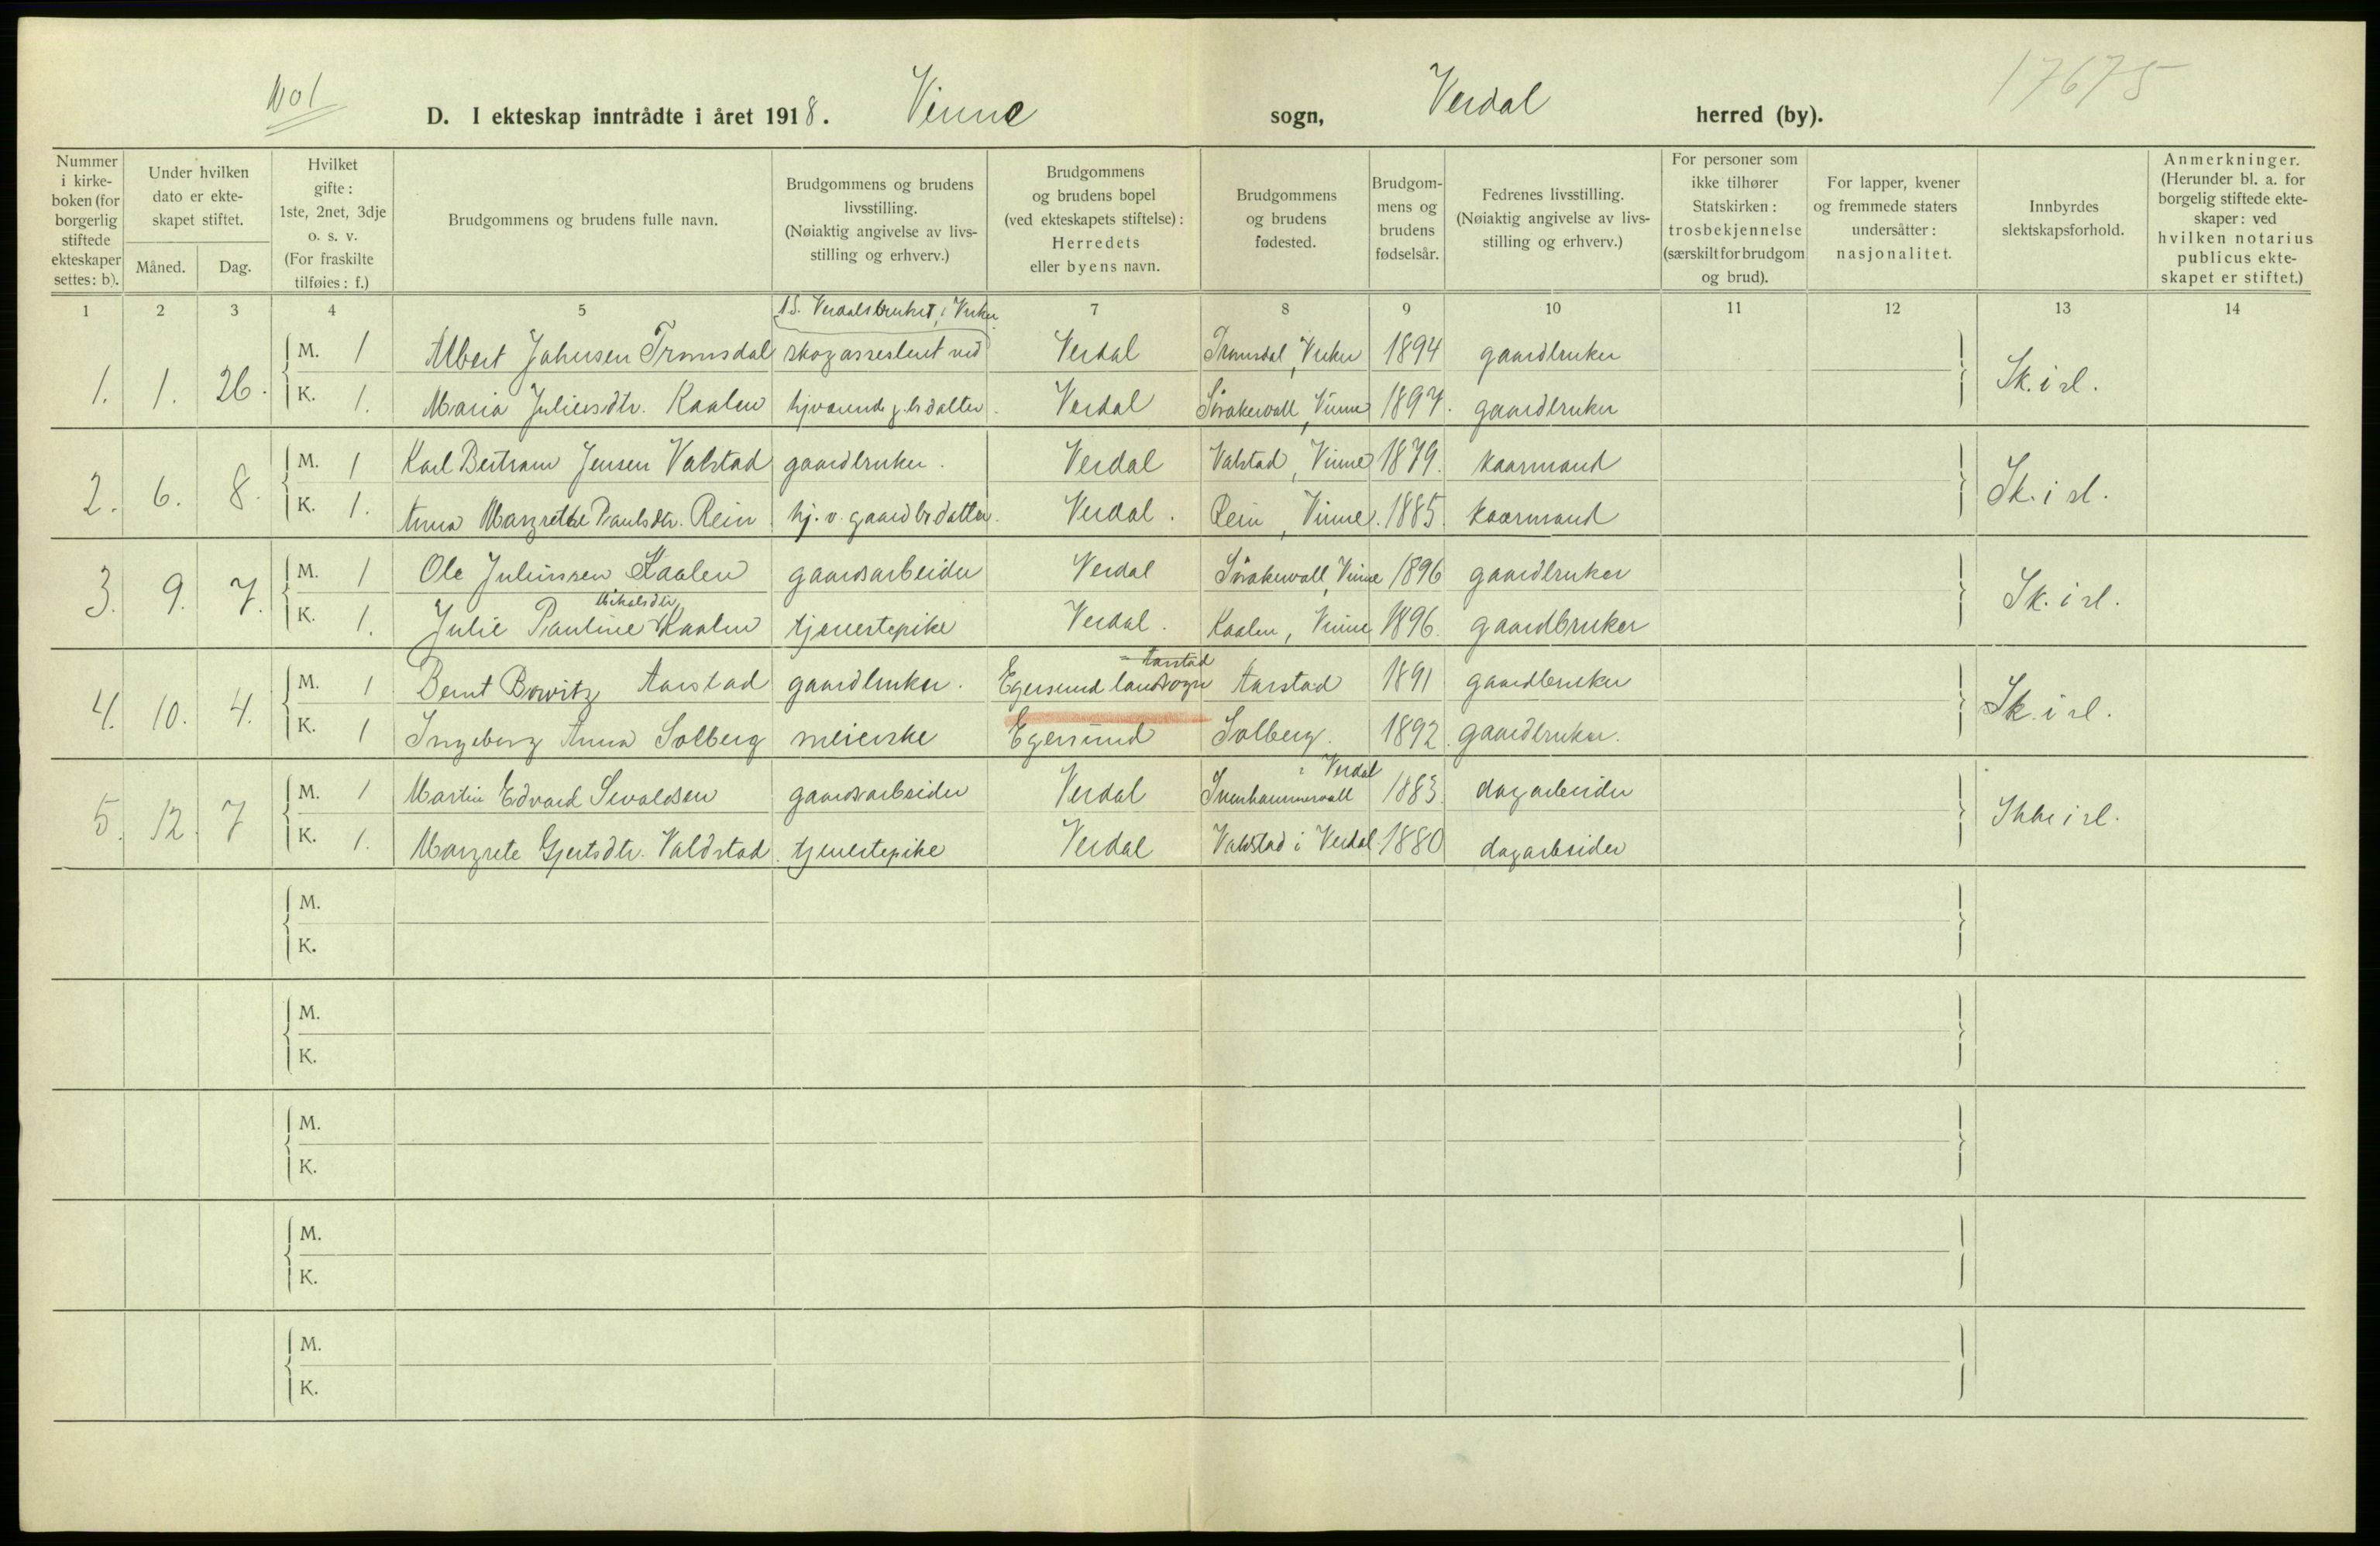 No 1
17675
D. I ekteskap inntrådte i året 1918. Vinne sogn, Verdal herred (by).
Nummer i kirkeboken (for borgerlig stiftede ekteskaper settes: b).
Under hvilken dato er ekteskapet stiftet.
Måned. Dag.
Hvilket gifte: 1ste, 2net, 3dje o. s. v. (For fraskilte tilføies: f.)
Brudgommens og brudens fulle navn.
Brudgommens og brudens livsstilling. (Nøiaktig angivelse av livsstilling og erhverv.)
Brudgommens og brudens bopel (ved ekteskapets stiftelse): Herredets eller byens navn.
Brudgommens og brudens fødested.
Brudgommens og brudens fødselsår.
Fedrenes livsstilling. (Nøiaktig angivelse av livsstilling og erhverv.)
For personer som ikke tilhører Statskirken: trosbekjennelse (særskilt for brudgom og brud).
For lapper, kvener og fremmede staters undersåtter: nasjonalitet.
Innbyrdes slektskapsforhold.
Anmerkninger. (Herunder bl. a. for borgelig stiftede ekteskaper: ved hvilken notarius publicus ekteskapet er stiftet.)
1 2 3 4 5 7 8 9 10 11 12 13 14
A/S. Verdalsbruket i Vuku
1. 1. 26. M. 1 Albert Johnsen Tromsdal skogassestent ved Verdal Tromsdal, Vuku 1894 gaardbruker Ik. i sl.
K. 1. Maria Juliusdtr. Kaalen hjværende g.br datter. Verdal Sörakervall, Vinne 1897. gaardbruker
2. 6. 8. M. 1 Karl Bertram Jensen Valstad gaardbruker. Verdal Valstad, Vinne 1879. kaarmand Ik. i sl.
K. 1. Anna Margrethe Paulsdtr. Rein hj. v. gaardbr datter. Verdal. Rein, Vinne. 1885. kaarmand
3. 9. 7. M. 1 Ole Juliussen Kaalen gaardsarbeider Verdal Sörakervall, Vinne 1896 gaardbruker Ik. i sl.
Mikalsdtr
K. 1. Julie Pauline Kaalen tjenestepike Verdal. Kaalen, Vinne 1896. gaardbruker
= Aarstad
4. 10. 4. M. 1 Bernt Bowitz Aarstad gaardbruker. Egersund landsogn Aarstad 1891 gaardbruker Ik. i sl.
K. 1 Ingeborg Anna Solberg meierske Egersund Solberg. 1892. gaardbruker.
i Verdal
5. 12. 7 M. 1 Martin Edvard Sevaldsen gaardsarbeider Verdal Svenhammervall 1883. dagarbeider Ikke i sl.
K. 1. Margrete Gjertsdtr. Valdstad. tjenestepike Verdal Valdstad i Verdal. 1880 dagarbeider
M.
K.
M.
K.
M.
K.
M.
K.
M.
K.